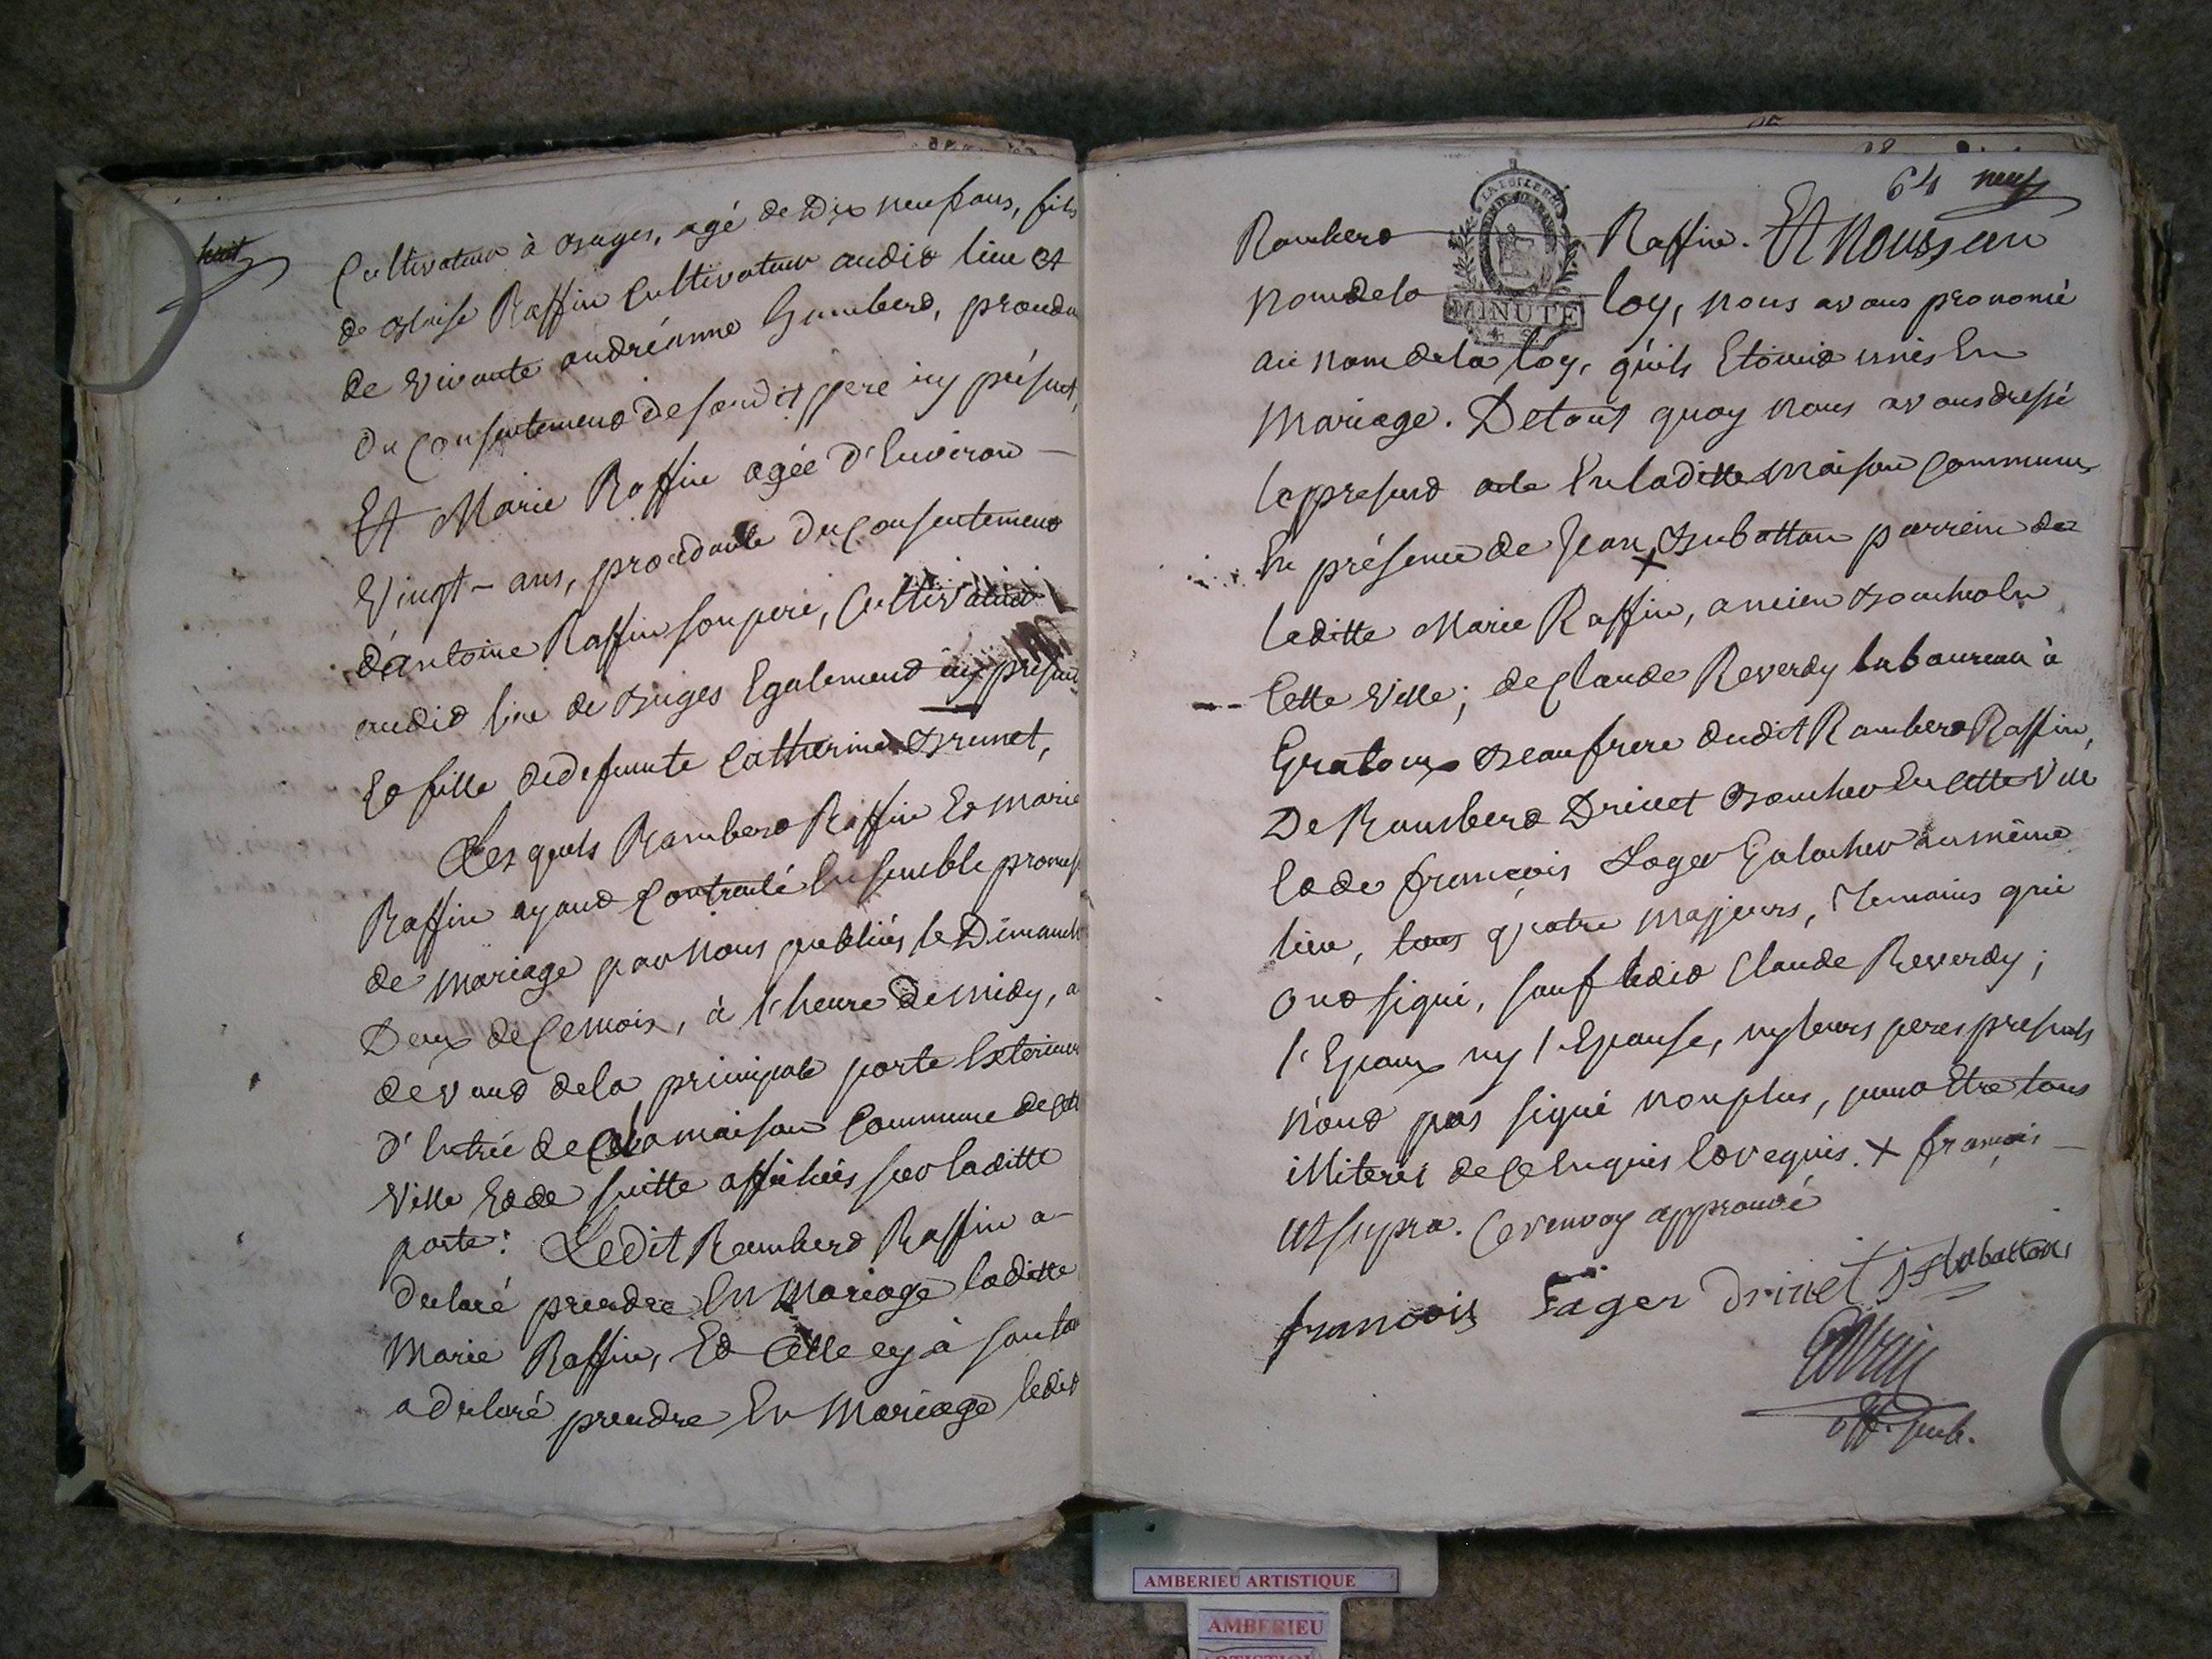 huit
Cultivateur à Buges, agé de Dix neuf ans, fils
de Blaise Raffin Cultivateur audit lieu et
de vivante andréanne Humbert, procedan
du Consentement de son dit pere icy présent,
Et Marie Raffin agée d'Environ
Vingt-ans, procedante du Consentement
d'antoine Raffin son pere, Cultivateur
audit lieu de Buges Egalement icy présent
Et fille de defunte Catherine Brunet,
Lesquels Rambert Raffin Et Marie
Raffin ayant Contracté Ensemble promes
de mariage par nous publiés le Dimanch
Deux de Ce mois, à l'heure de midy, a
devant de la principale porte Exterieure
d'Entrée de la maison Commune de cett
Ville Et de suitte affichées sur laditte
porte: Ledit Rambert Raffin a
declaré prendre En Mariage laditte
Marie Raffin, Et Celle cy à son tou
a declaré prendre En Mariage ledit
64 neuf
Rambert Raffin. Et Nous au
LA FEUILLE
MINUTE
nom de la loy, nous avons prononcé
au nom de la loy, qu'ils Etoient unis En
Mariage. De tout quoy nous avons dressé
le present acte En laditte Maison Commune
En présence de Jean x Dubattan parrein de
laditte Marie Raffin, ancien Boucher En
Cette Ville; de Claude Reverdy laboureur à
Gratoux Beaufrere dudit Rambert Raffin,
De Rambert Drivet Boucher En Cette Ville
Et de françois Lager Galocher au même
lieu, tous quatre Majeurs, Temoins qui
ont signé, sauf ledit Claude Reverdy;
l'Epoux ny l'Epouse, ny leurs peres presents
n'ont pas signé non plus, pour Etre tous
illiterés de Ce Enquis Et requis. x françois
ut supra. Ce renvoy approuvé
francois Lager Drivet J Dubattan
off. pub.
AMBERIEU ARTISTIQUE
AMBERIEU
ARTISTIQUE